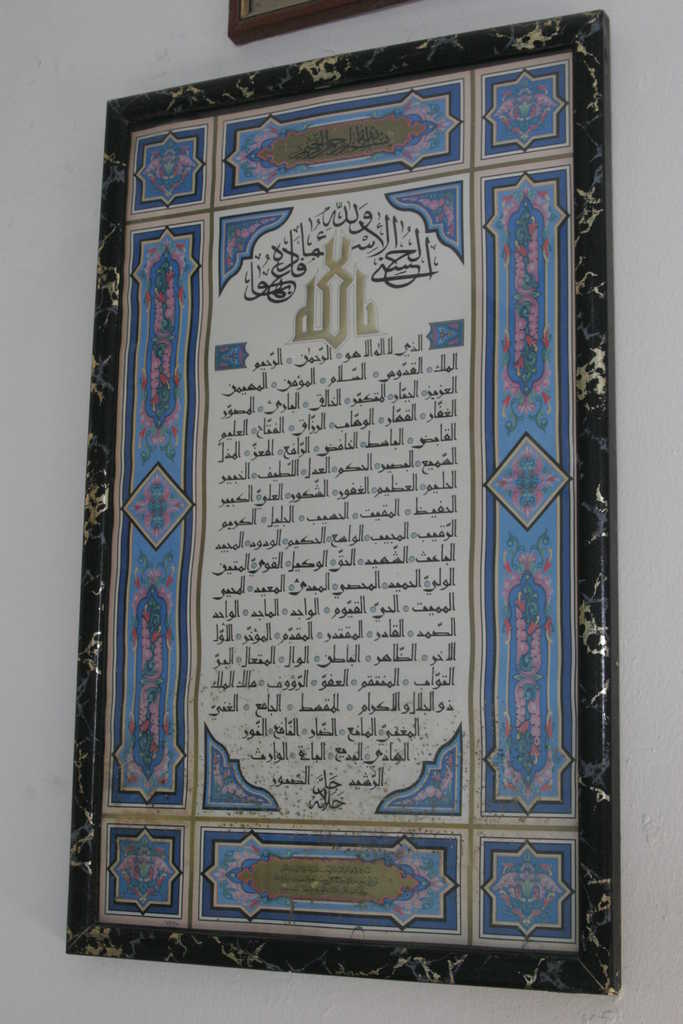 ولله الأسماء الحسنى فادعوه بها
يا الله
الذي لا اله الا هو الرّحمن الرّحيم
الملك القدّوس السّلام المؤمن المهيمن
العزيز الجبّار المتكبّر الخالق البارئ المصوّر
الغفّار القهّار الوهّاب الرزّاق الفتّاح العليم
القابض الباسط الخافض الرّافع المعزّ المذلّ
السّميع البصير الحكم العدل اللّطيف الخبير
الحليم العظيم الغفور الشّكور العليّ الكبير
الحفيظ المقيت الحسيب الجليل الكريم
الرّقيب المجيب الواسع الحكيم الودود المجيد
الباعث الشّهيد الحقّ الوكيل القويّ المتين
الوليّ الحميد المحصي المبدئ المعيد المحيي
المميت الحيّ القيّوم الواجد الماجد الواحد
الصّمد القادر المقتدر المقدّم المؤخّر الاوّل
الآخر الظّاهر الباطن الوال المتعال البرّ
التوّاب المنتقم العفوّ الرّؤوف مالك الملك
ذو الجلال والاكرام المقسط الجامع الغنيّ
المغنيّ المانع الضّار النّافع النّور
الهادي البديع الباقي الوارث
الرّشيد الصّبور
جلّ جلاله